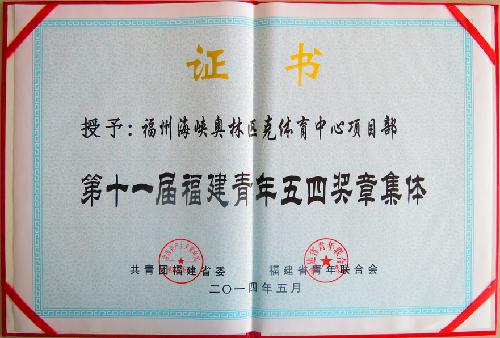 证书
授予：福州海峡奥林匹克体育中心项目部
第十一届福建青年五四奖章集体
共青团福建省委 福建省青年联合会
二〇一四年五月